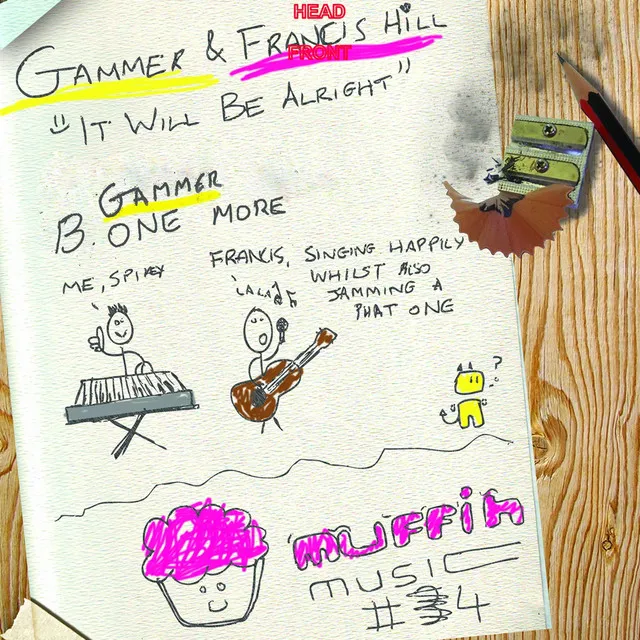 HEAD
FRONT
GAMMER & FRANCIS HILL
"IT WILL BE ALRIGHT"
GAMMER
B. ONE MORE
ME, SPIKEY
FRANCIS, SINGING HAPPILY
WHILST ALSO
JAMMING A
PHAT ONE
LALA
?
muffin
music
#4